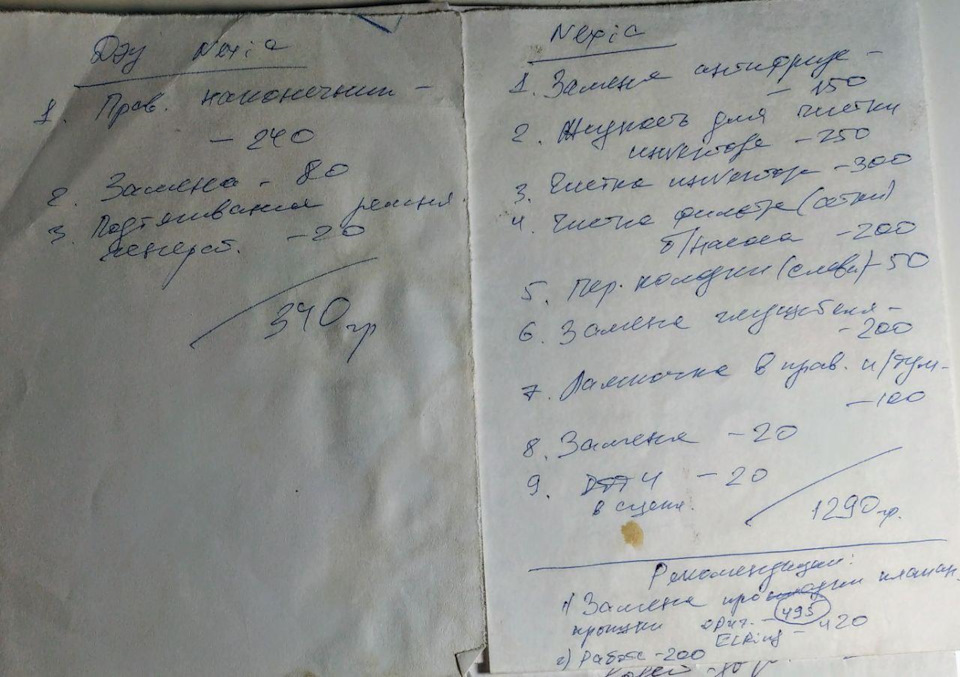 Дэу Nexia
1. Прав. наконечник -
- 240
2. Замена - 80
3. Подтягивание ремня
генерат. - 20
340 гр
Nexia
1. Замена антифриза -
- 150
2. Жидкость для чистки
инжектора - 250
3. Чистка инжектора - 300
4. Чистка фильтра (сетки)
б/насоса - 200
5. Пер. колодки (слева) - 50
6. Замена глушителя -
- 200
7. Лампочка в прав. п/тум. -
- 100
8. Замена - 20
9. - 20
в сцепл.
1290 гр.
Рекомендации:
1) Замена прокладки клапан.
крышки ориг. - 495
ELRing - 420
2) Работа - 200